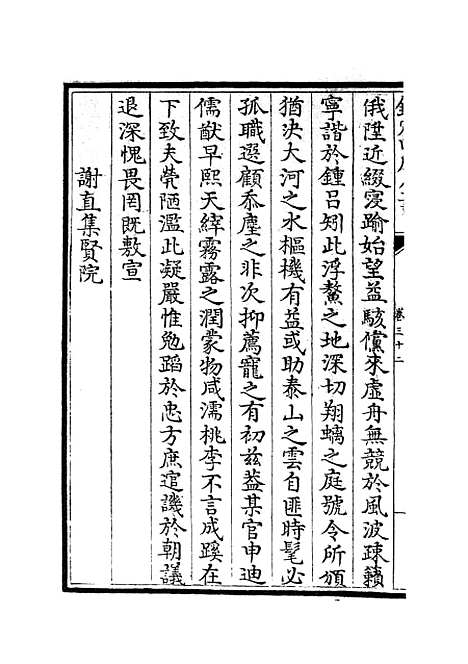 欽定四庫全書
卷三十二
俄陞近綴寖踰始望益駭儻來虚舟無競於風波疎籟
寧諧於鍾吕矧此浮鰲之地深切翔螭之庭號令所頒
猶决大河之水樞機有益或助泰山之雲自匪時髦必
孤職選顧忝塵之非次抑薦寵之有初兹葢某官申迪
儒猷早熙天縡霧露之潤蒙物咸濡桃李不言成蹊在
下致夫㷀陋濫此凝嚴惟勉蹈於忠方庶逭譏於朝議
退深愧畏罔既敷宣
謝直集賢院